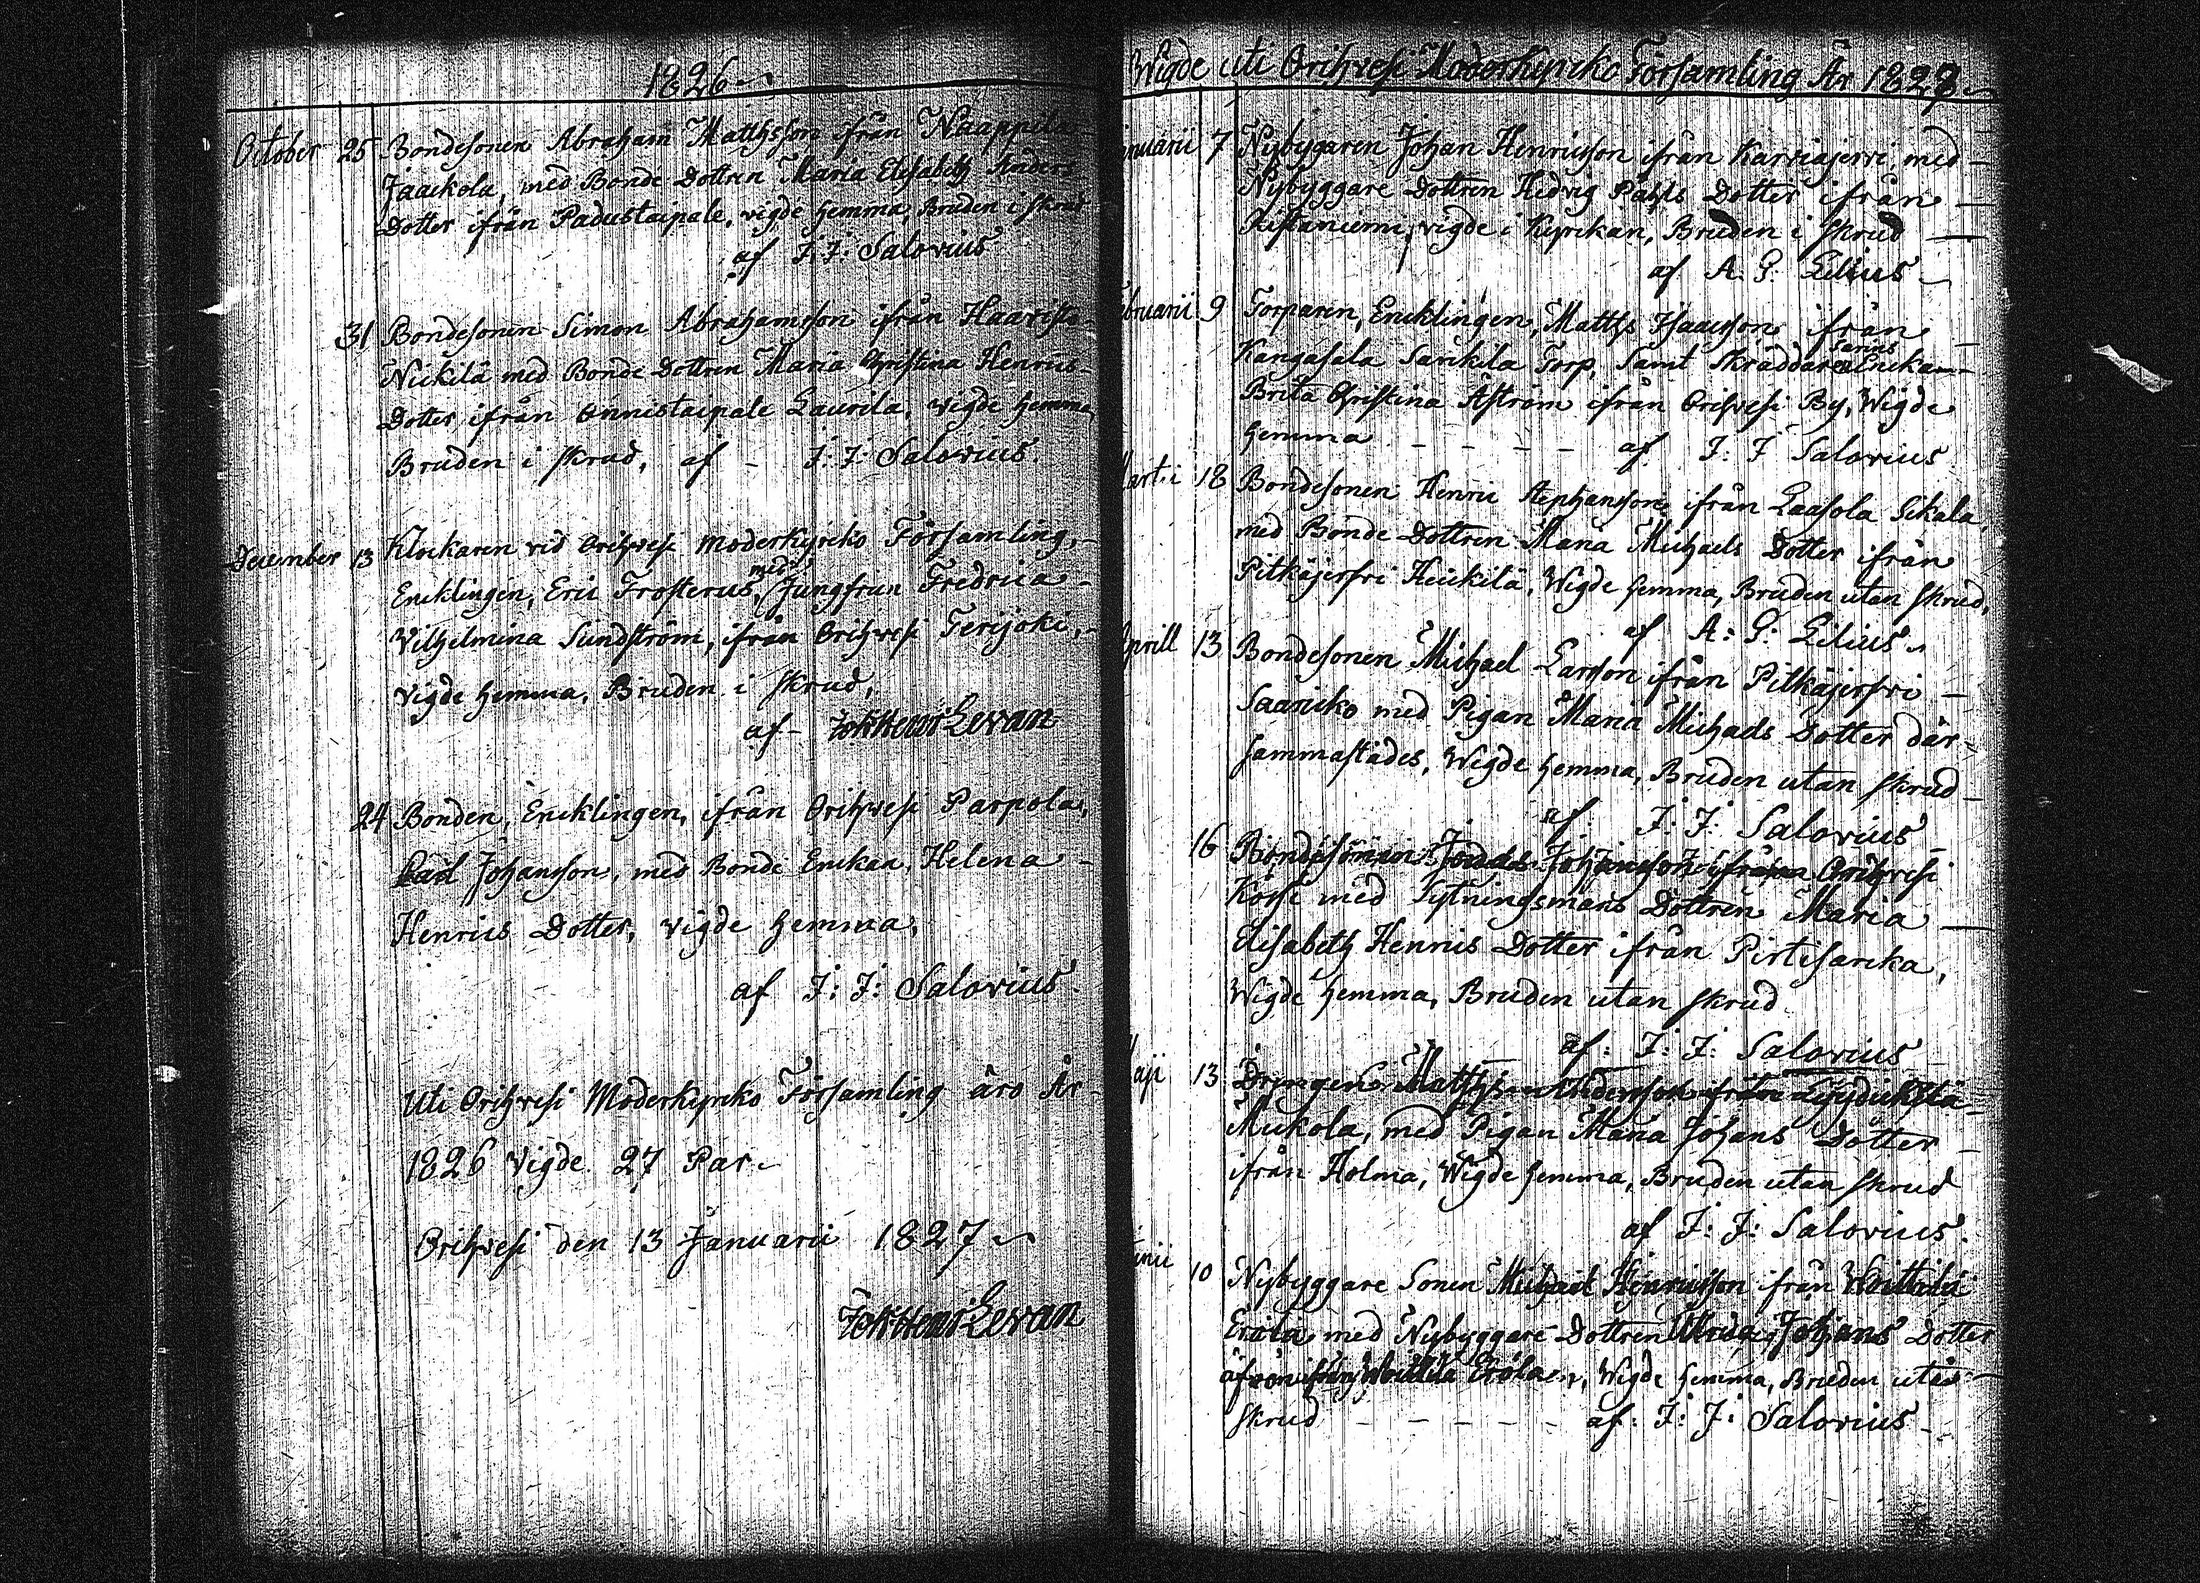 1826
October 25 Bondesonen Abraham Matthsson ifrån Naappila
Jaackola, med Bonde Dottren Maria Elisabeth Anders
Dotter ifrån Padustaipale, vigde hemma, Bruden i skrud
af J: J: Salovius
31 Bondesonen Simon Abrahamsson ifrån Haavisto
Nickilä med Bonde Dottren Maria Christina Henrics
Dotter ifrån Onnistaipale Laurila, vigde hemma,
Bruden i skrud, af - J: J: Salovius
December 13 Klockaren vid Orihvesi Moderkyrko Församling,
Encklingen, Eric Frosterus, med Jungfrun Fredrica
Vilhelmina Sundström, ifrån Orihvesi Terijoki,
vigde hemma, Bruden i skrud,
af - Joh Henr Levan
24 Bonden, Encklingen, ifrån Orihvesi Parpola,
Carl Johansson, med Bonde Enckan, Helena
Henrics Dotter, vigde hemma,
af J: J: Salovius
Uti Orihvesi Moderkyrko Församling äro År
1826 vigde 27 Par
Orihvesi den 13 Januarii 1827
Joh Henr Levan
Wigde uti Orihvesi Moderkyrko Församling År 1827
nuarii 7 Nybyggaren Johan Henricsson ifrån Karviajervi, med
Nybyggare Dottren Hedvig Påhls Dotter ifrån
vigde i Kyrckan, Bruden i skrud
af A. G. Lilius
bruarii 9 Torparen, Encklingen, Matths Isaacsson ifrån
Kangasala Sarikila Torp, Samt Skräddare Enckan
Brita Christina Åström ifrån Orihvesi By, Wigde
hemma - - - - af J: J Salovius
arti 18 Bondesonen Henric Stephansson, ifrån Laasola Sikala,
med Bonde Dottren Maria Michaels Dotter ifrån
Pitkäjerfvi Heickilä, Wigde hemma, Bruden utan skrud,
af A: G: Lilius
prill 13 Bondesonen Michael Larsson ifrån Pitkäjerfvi
Saariko med Pigan Maria Michaels Dotter där
sammastädes, Wigde hemma, Bruden utan skrud
af: J: J: Salovius
16 Bondesonen Johansson ifrån Orihvesi
med Fjstningsmans Dottren Maria
Elisabeth Henrics Dotter ifrån Pirtisarcka,
Wigde hemma, Bruden utan skrud
af: J: J: Salovius
aji 13 Drengen Matths Andersson ifrån
Muckola, med Pigan Maria Johans Dotter
ifrån Holma, Wigde hemma, Bruden utan skrud
af J: J: Salovius.
unii 10 Nybyggare Sonen Michael Henricsson ifrån Woittila
Erola med Nybyggare Dottren Ulrica Johans Dotter
ifrån Woittila Erola, Wigde hemma, Bruden utan
skrud - - - - - af: J: J: Salovius